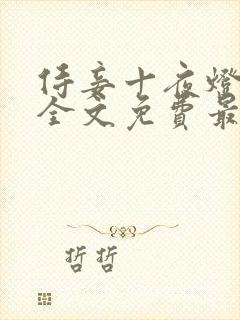 侍妾十夜燈
全文免費最
哲哲